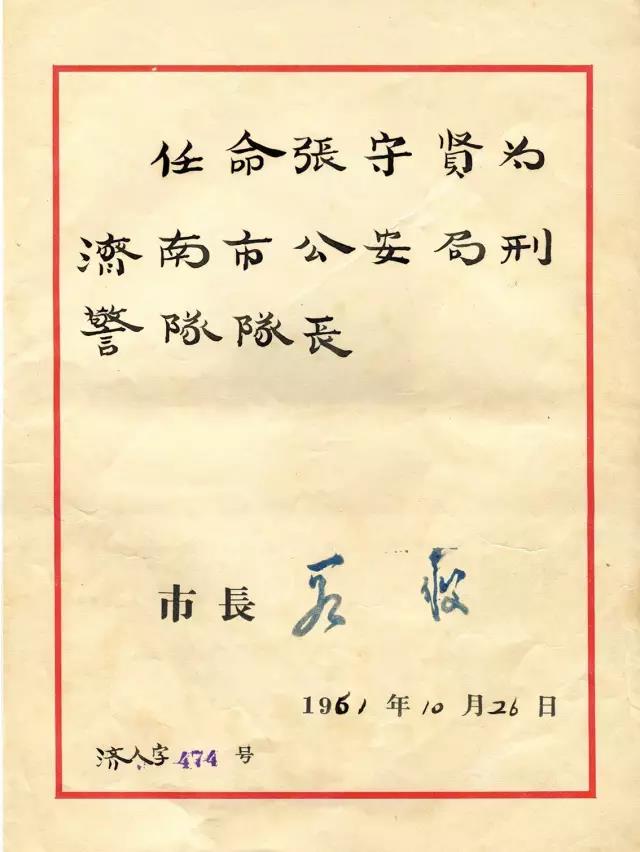 任命張守贤为
濟南市公安局刑
警隊隊長
市長
1961年10月26日
济人字474号